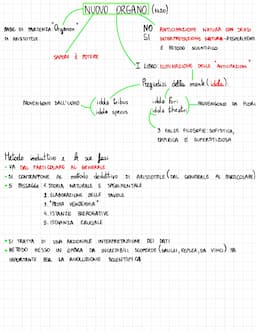 NUOVO ORGANO (1620)
BASE DI PARTENZA "Organon"
DI ARISTOTELE
NO ANTICIPAZIONE NATURA CON SENSI
SÌ INTERPRETAZIONE NATURA = ESPERIMENTI
E METODO SCIENTIFICO
SAPERE È POTERE
I LIBRO ELIMINAZIONE DELLE "ANTICIPAZIONI"
Pregiudizi della mente (idola)
PROVENGONO DALL'UOMO
idola tribus
idola specus
idola fori
idola theatri
PROVENGONO DA FUORI
3 FALSE FILOSOFIE: SOFISTICA,
EMPIRICA E SUPERSTIZIOSA
Metodo induttivo e le sue fasi
• VA DAL PARTICOLARE AL GENERALE
• SI CONTRAPPONE AL metodo deduttivo DI ARISTOTELE (DAL GENERALE AL PARTICOLARE)
• 5 PASSAGGI: 1. STORIA NATURALE E SPERIMENTALE
2. ELABORAZIONE DELLE TAVOLE
3. "PRIMA VENDEMMIA"
4. ISTANZE PREROGATIVE
5. ISTANZA CRUCIALE
• SI TRATTA DI UNA RAZIONALE INTERPRETAZIONE DEI DATI
• METODO MESSO IN OPERA DA INCREDIBILI SCOPERTE (GALILEI, KEPLERO, DA VINCI) MA
IMPORTANTE PER LA RIVOLUZIONE SCIENTIFICA